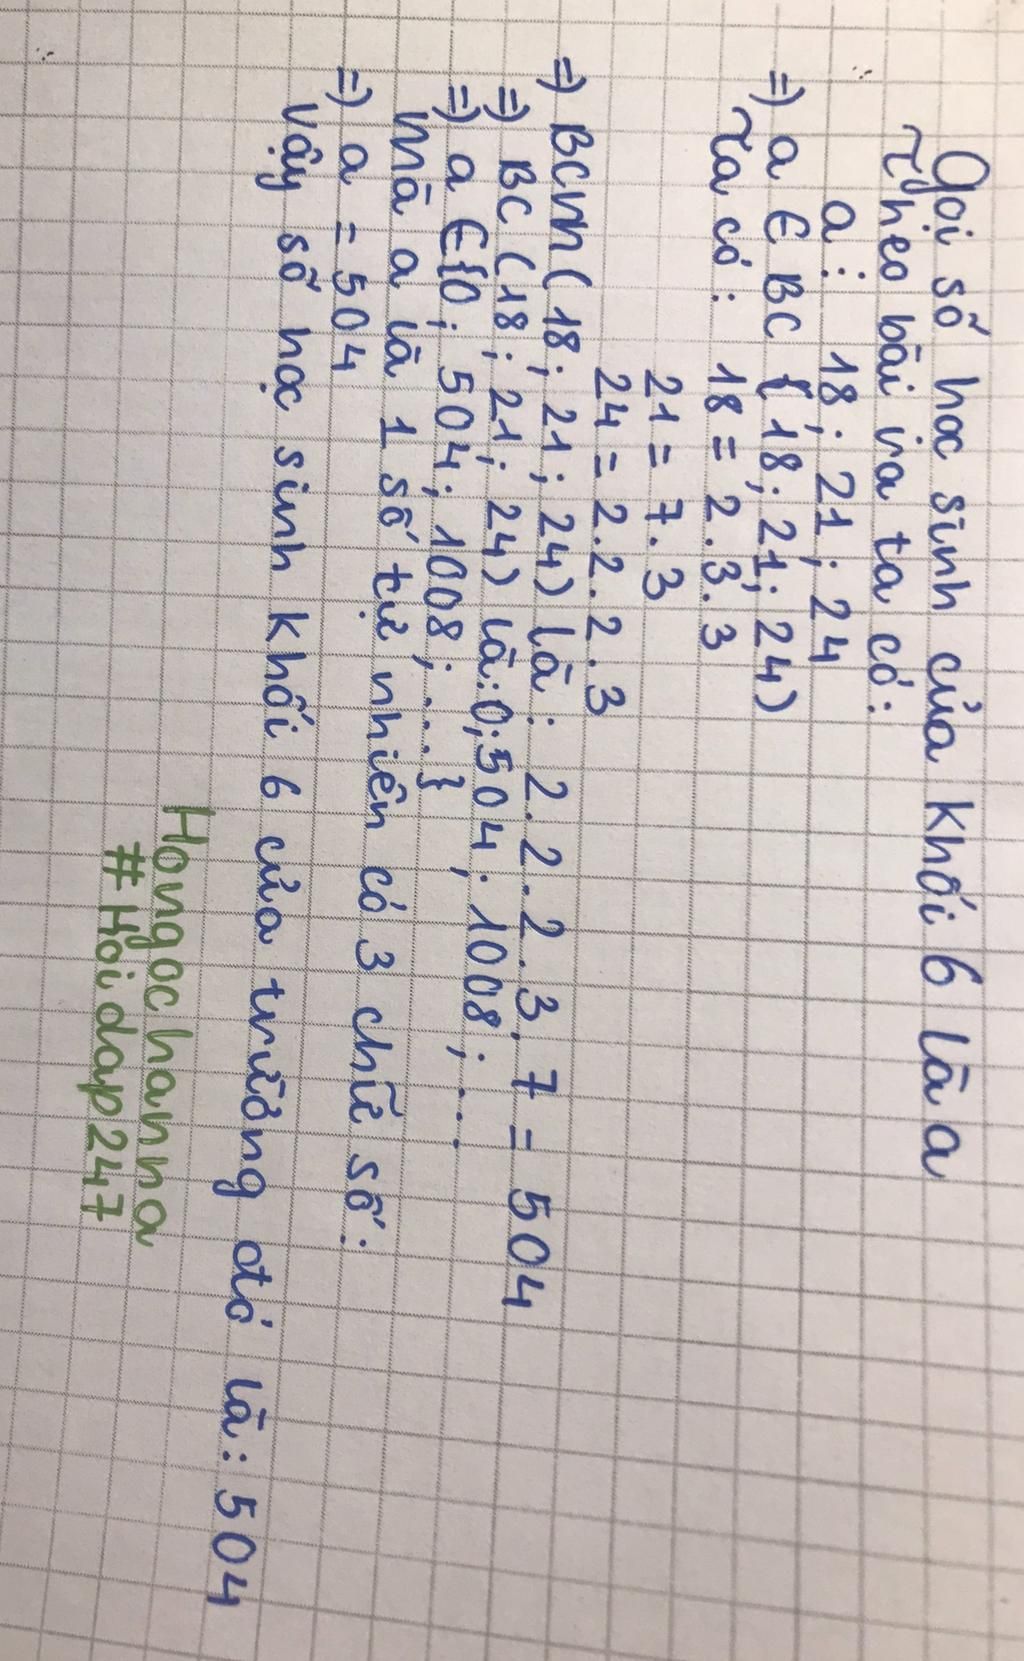 Gọi số học sinh của khối 6 là a
Theo bài ra ta có:
a ⋮ 18; 21; 24
=) a ∈ BC (18; 21; 24)
Ta có: 18 = 2.3.3
21 = 7.3
24 = 2.2.2.3
=) BCNN (18; 21; 24) là: 2.2.2.3.7 = 504
=) BC (18; 21; 24) là: 0; 504; 1008; ...
=) a ∈ {0; 504; 1008; ...}
mà a là 1 số tự nhiên có 3 chữ số:
=) a = 504
Vậy số học sinh khối 6 của trường đó là: 504
Hongochanna
#Hoidap247